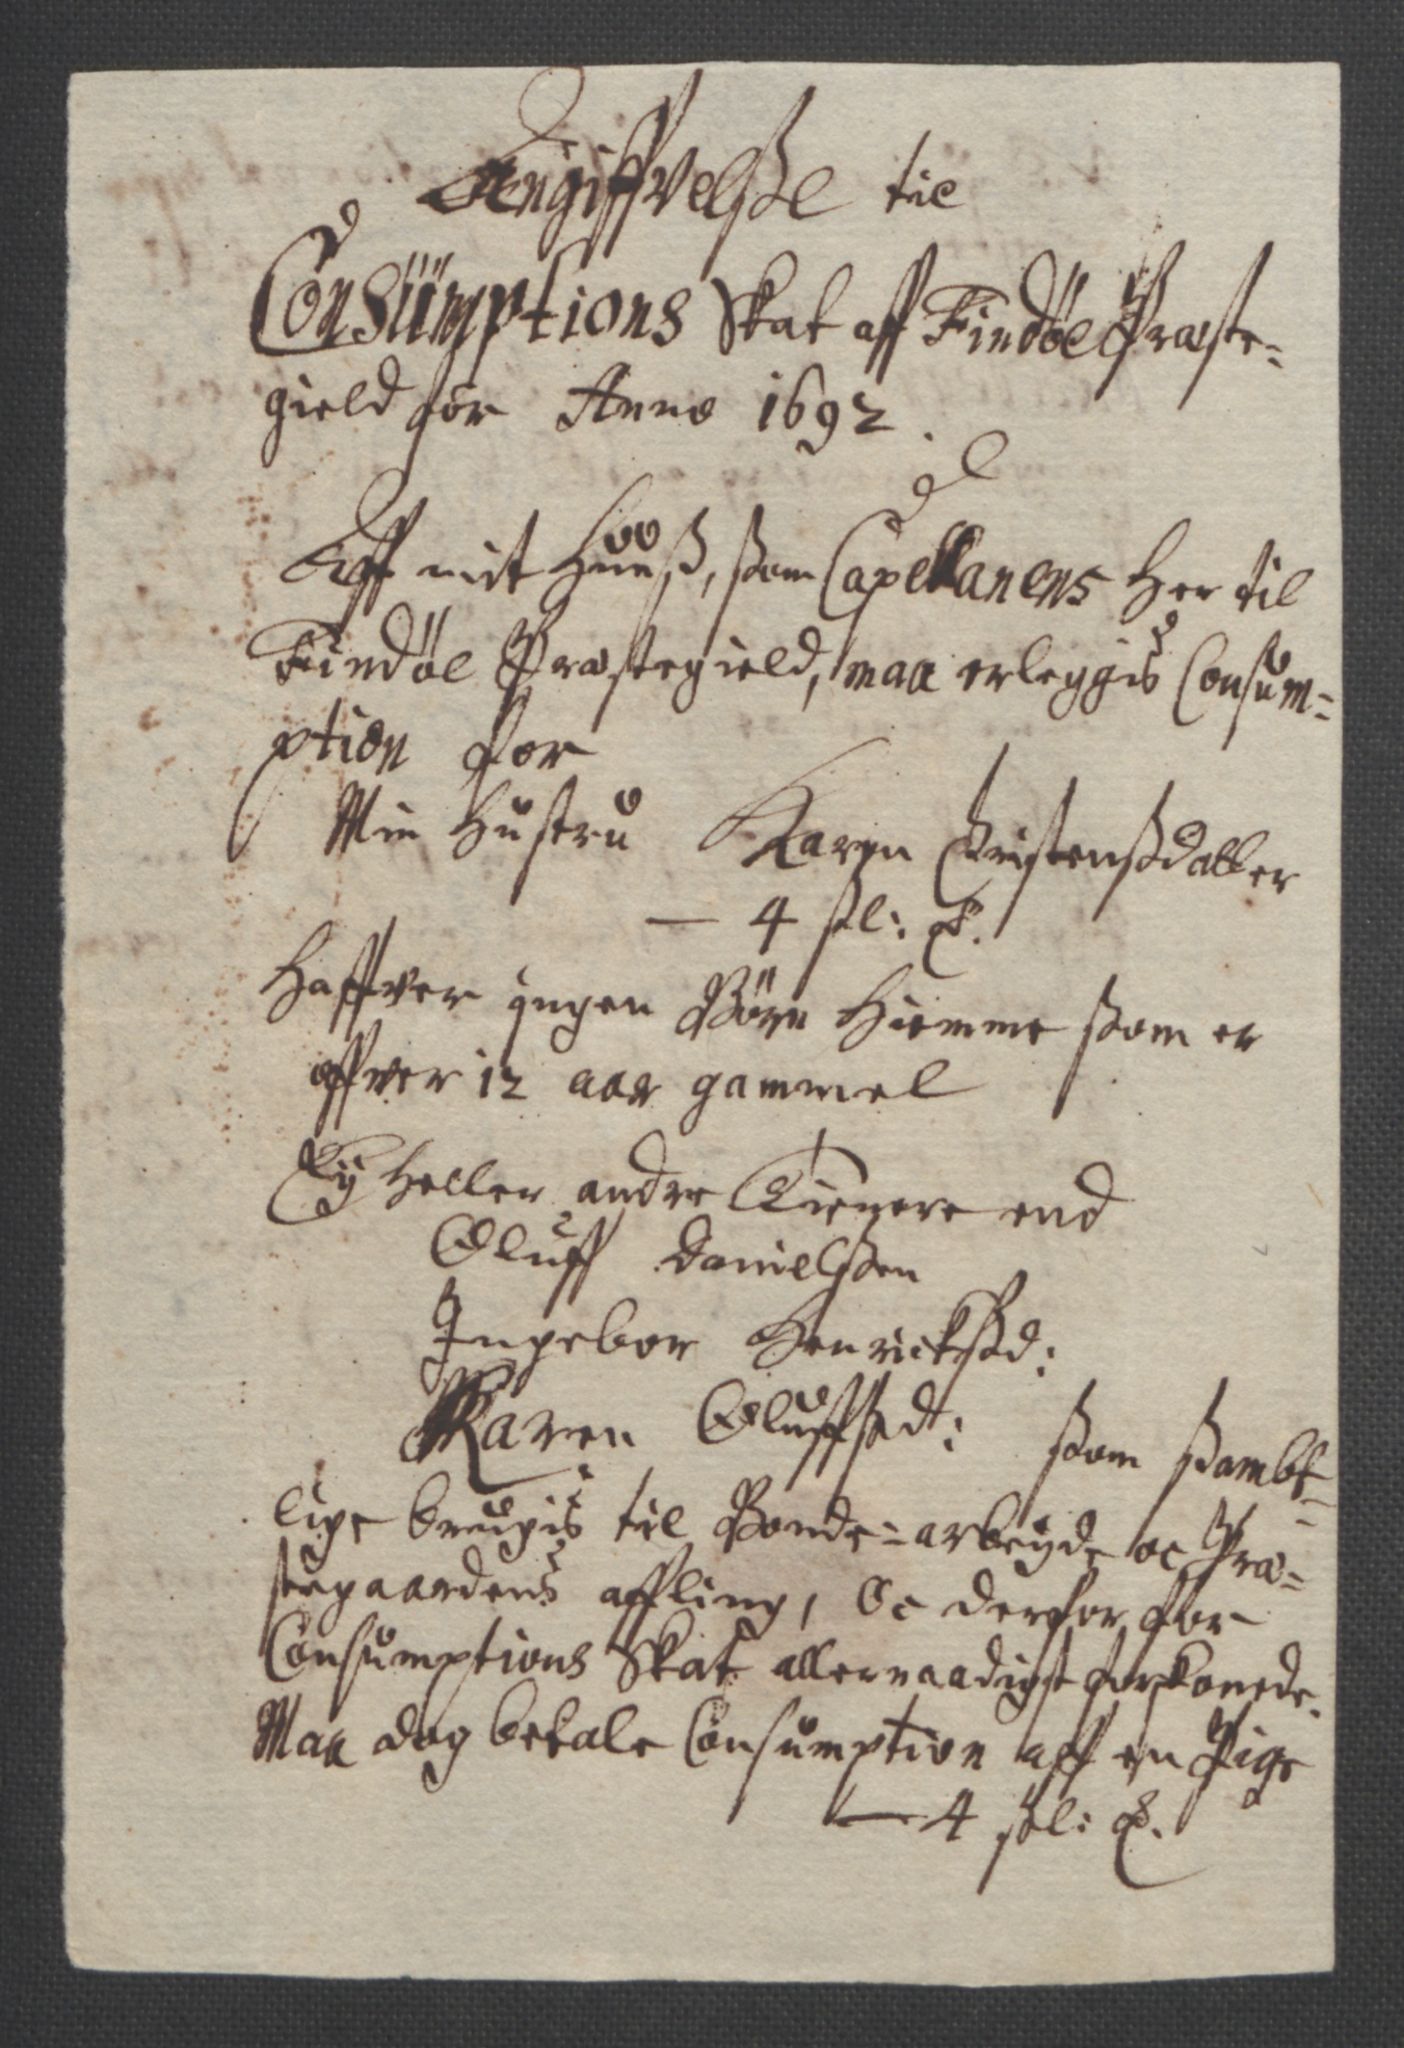 Angiffvelße til
Consümptions Skat aff Findöe Præste=
gield for Anno 1692.
Aff mit Huuß, ßom Capellanens her til
Findöe Præstegield, maa erleggis Consum=
ption for
Min Hustru Karen Christensßdatter
— 4 ßl:
Haffver ingen Börn hiemme ßom er
offver 12 aar gammel
Ey heller andre Tienere end
Oluff Danielßen
Ingebor Henrickßd:
Karen Oluffßd: ßom ßambt=
lige brugis til Bonde=arbeyde oc Præ=
stegaardens affling, Oc derfor for
Consumptions Skat allernaadigst forskonede.
Maa dog betale Consumption aff en Pige
— 4 ßl: